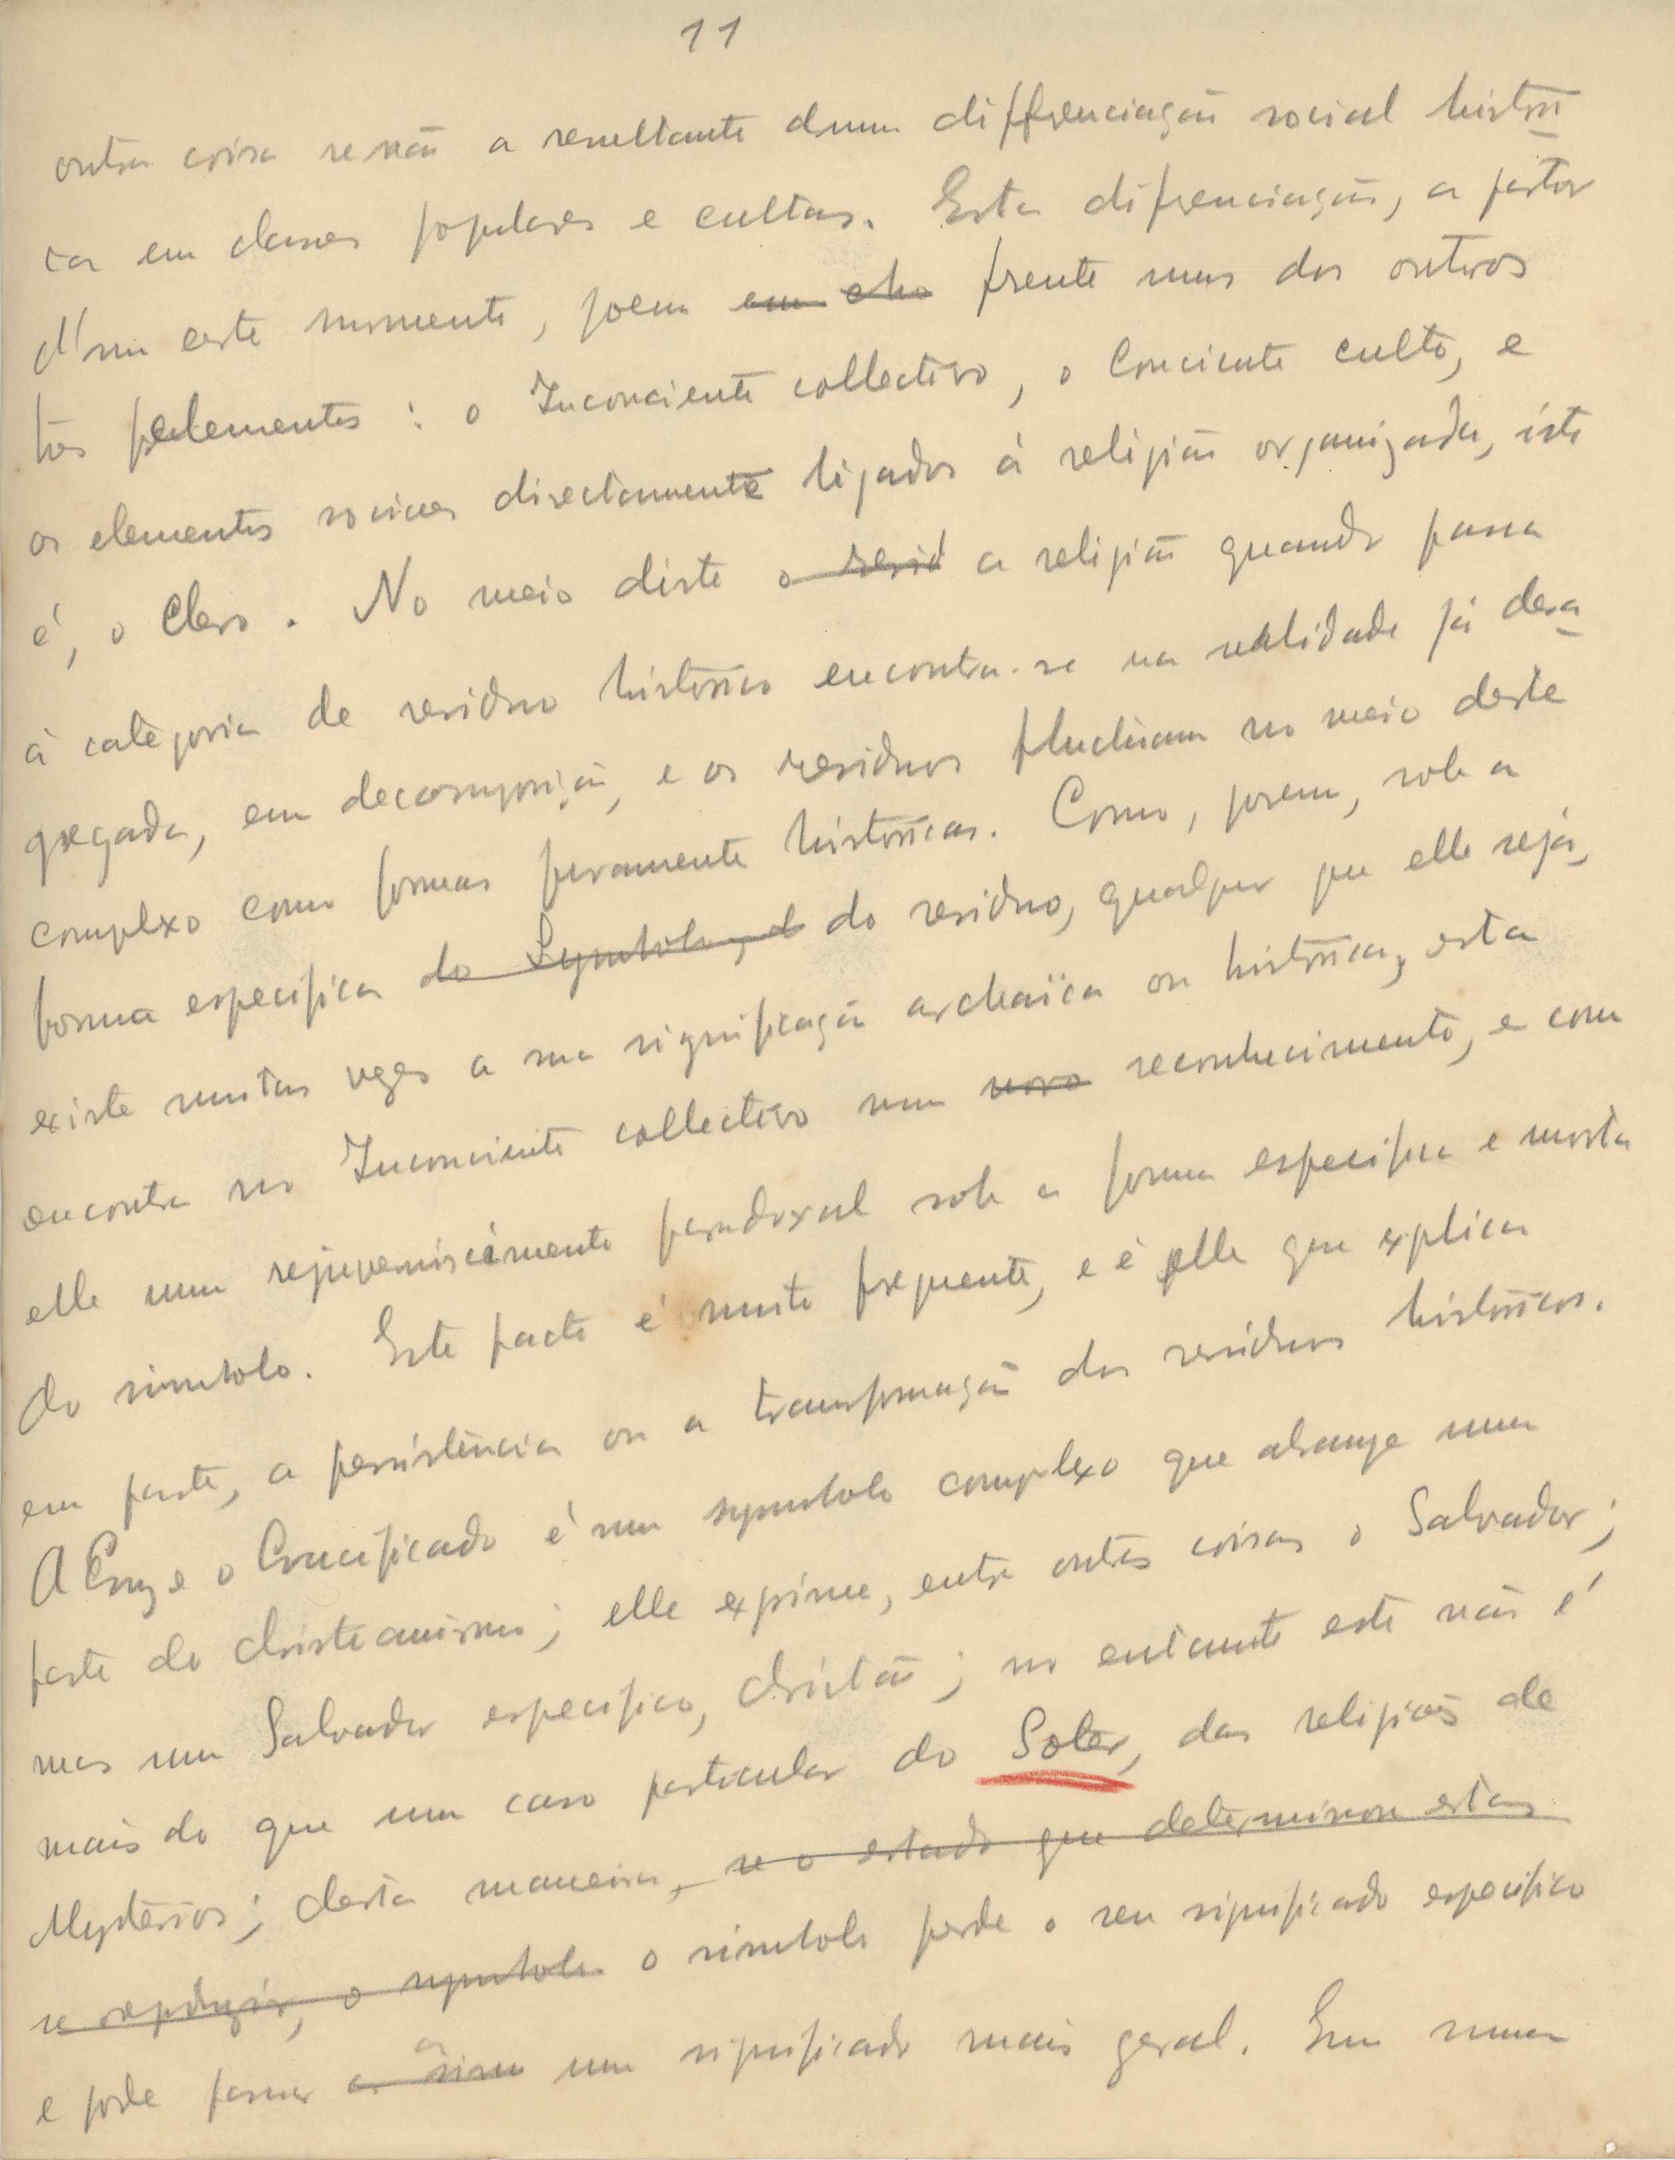 11
outra coisa senão a resultante duma differenciação social histori
ca em classes populares e cultas. Esta difrenciação, a partir
d'um certo momento, poem em cho frente uns dos outros
tres elementos : o Inconciente collectivo, o Conciente culto, e
os elementos sociaes directamente ligados á religião organizada, isto
é, o Clero. No meio disto o resid a religião quando passa
á categoria de residuo historico encontra-se na realidade já desa
gregada, em decomposição, e os residuos fluctuam no meio deste
complexo como formas puramente historicas. Como, porem, sob a
forma especifica do Symbolo, d do residuo, qualquer que elle seja,
existe muitas vezes a sua significação archaïca ou historica, esta
encontra no Inconciente collectivo um novo reconhecimento, e com
elle um rejuvenriscimento paradoxal sob a forma especifica e morta
do simbolo. Este facto é muito frequente, e é elle que explica
em parte, a persistencia ou a transformação dos residuos historicos.
A Cruz e o Crucificado é um symbolo complexo que abrange uma
parte do christianismo; elle exprime, entre outras coisas o Salvador;
mas um Salvador especifico, christão; no entanto este não é
mais do que um caso particular do Soter, das religiões de
Mysterios; desta maneira, se o estado que determinou estas
se reproduzir, o symbolo o simbolo perde o seu significado especifico
e pode passar a sim a um significado mais geral. Em suma